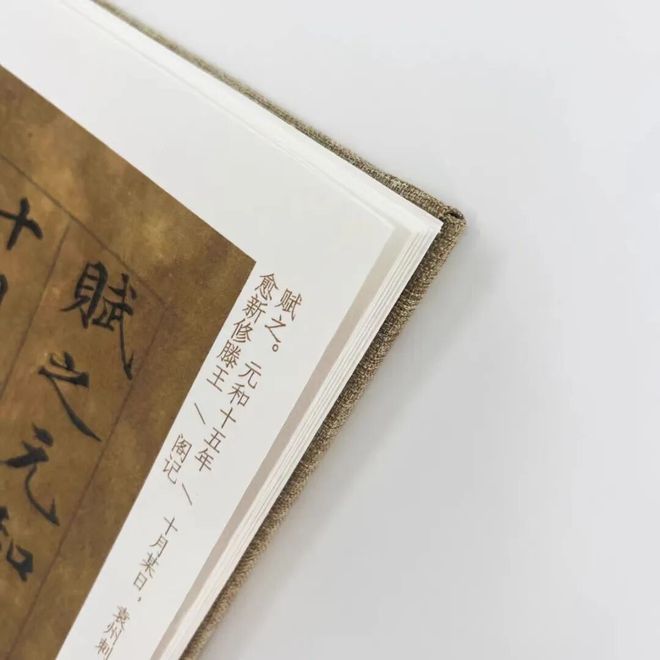 赋之。元和十五年 / 十月某日，袁州刺
愈新修滕王 / 阁记
賦之元和
十月